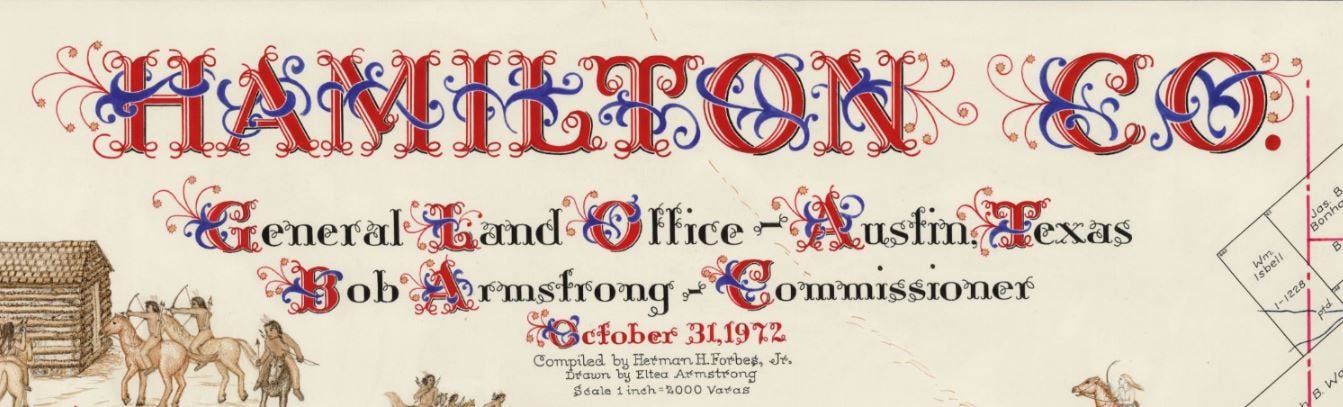 HAMILTON CO.
General Land Office - Austin, Texas
Bob Armstrong - Commissioner
October 31, 1972
Compiled by Herman H. Forbes, Jr.
Drawn by Eltea Armstrong
Scale 1 inch = 2000 Varas
Jas. B.
Bonha
Wm.
Isbell
1-1228
ptd
B. Wa